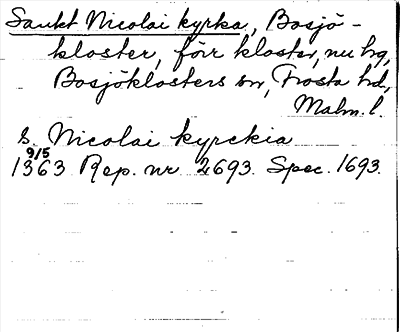 Sankt Nicolai kyrka, Bosjö-
kloster, förr kloster, nu hg,
Bosjöklosters sn, Frosta hd,
Malm. l.
S. Nicolai kyrckia
9/5
1363 Rep. nr 2693. Spec. 1693.